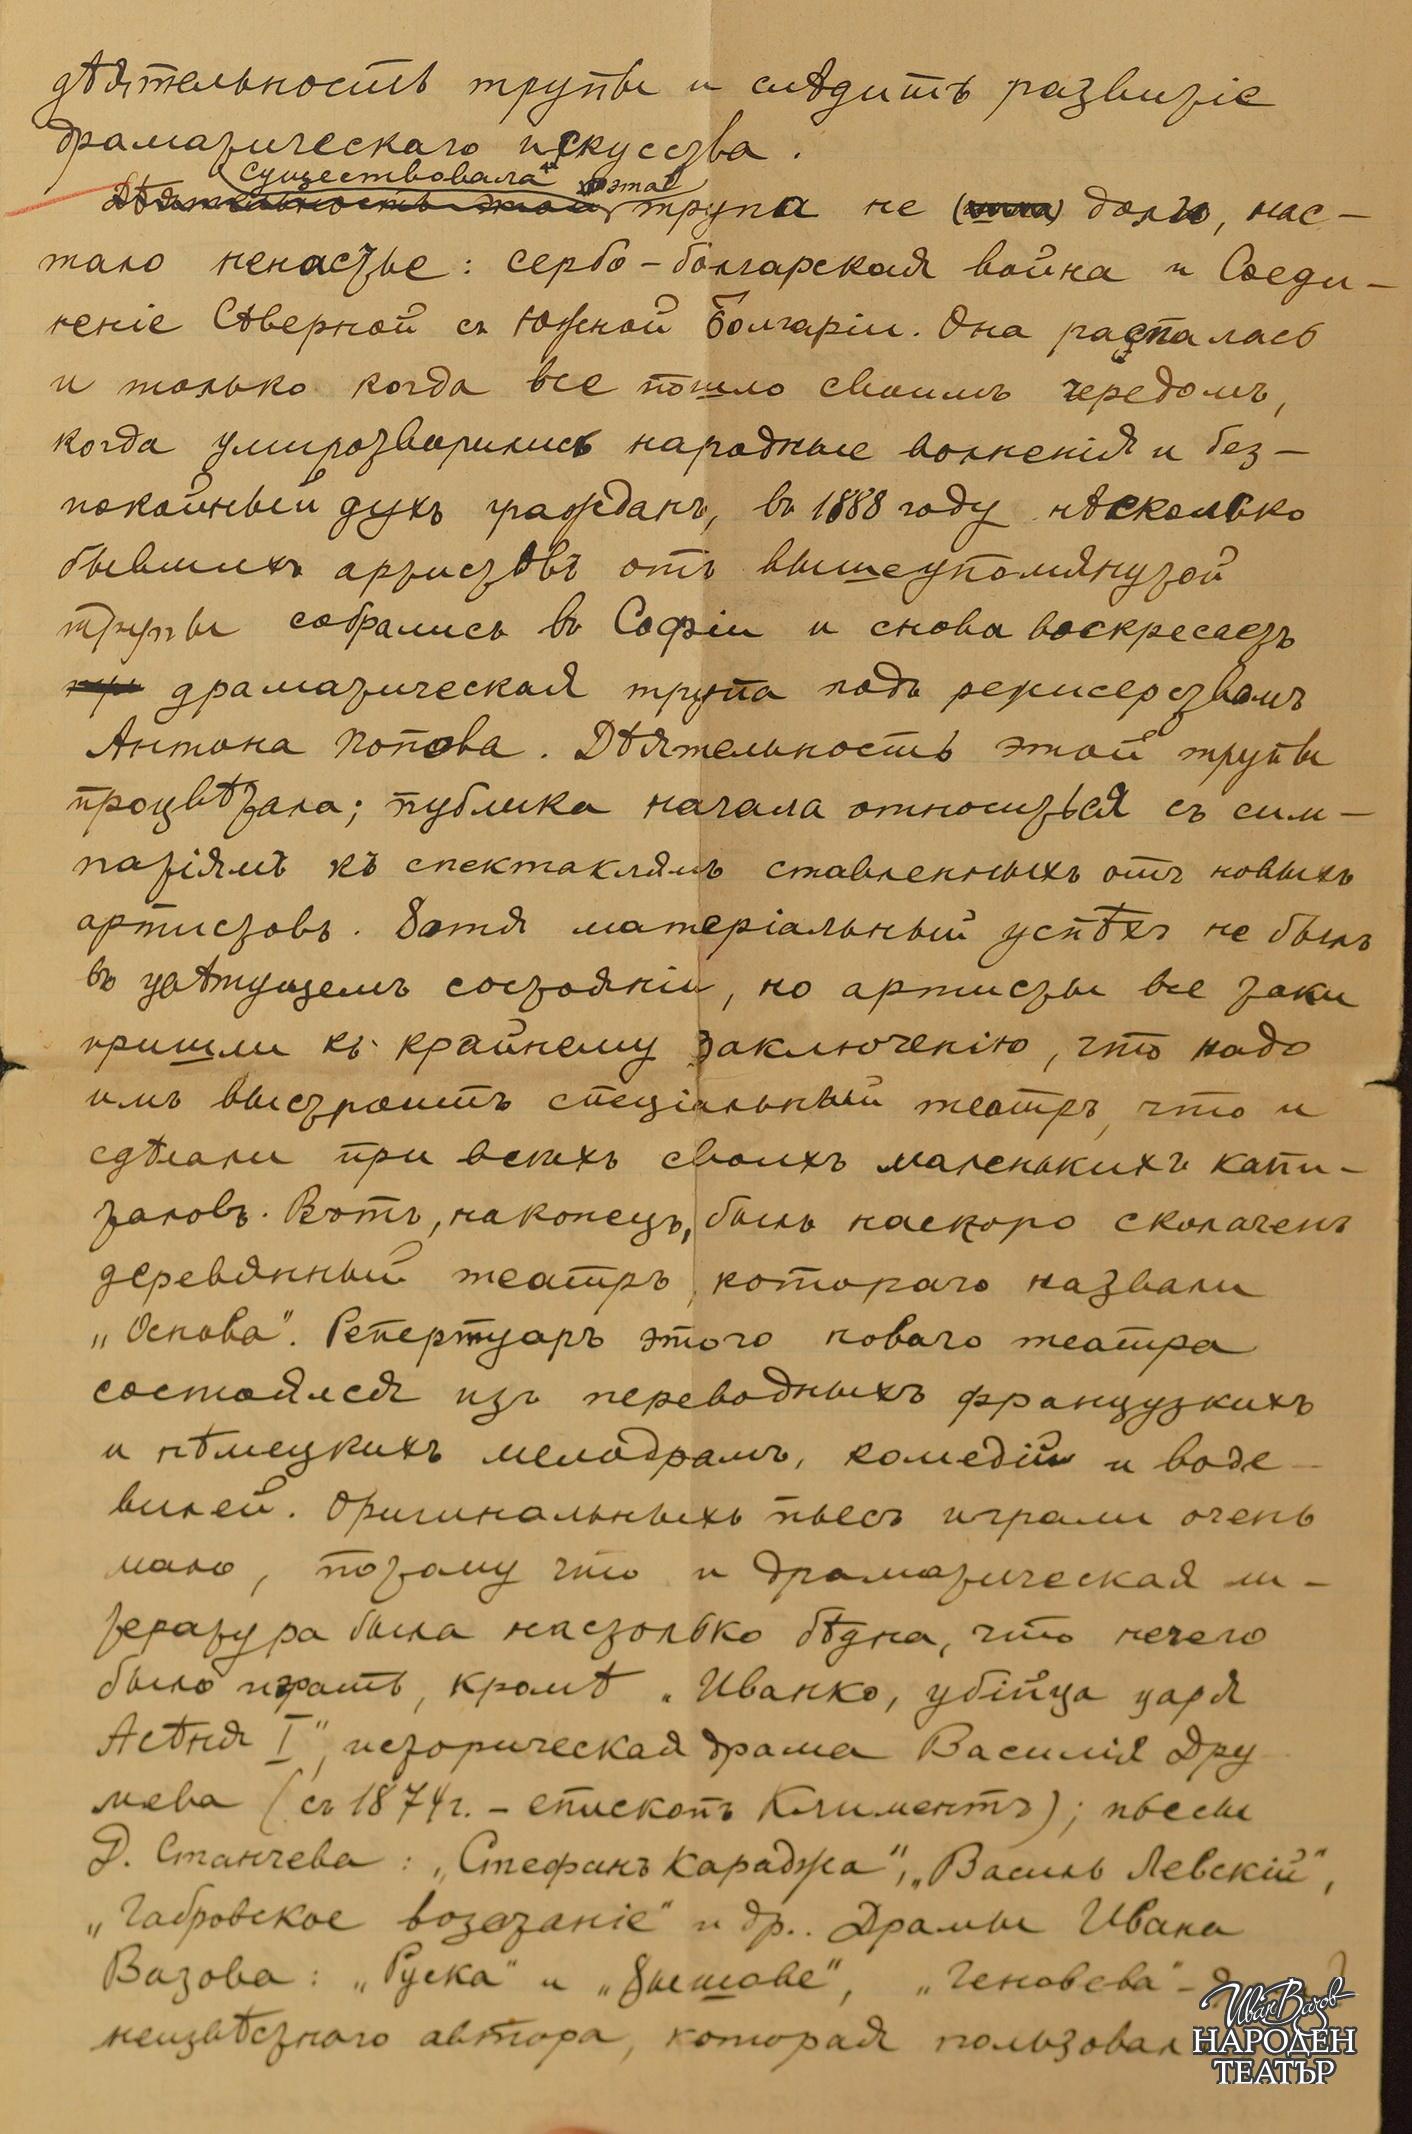 дѣятельность трупы и слѣдить развитіе
драматическаго искусства.
существовала эта
Дѣятельность этой трупа не долго, нас-
тало ненастье: сербо-болгарская война и Соеди-
неніе Сѣверной съ Южной Болгаріи. Она распалась
и только когда все пошло своимъ чередомъ,
когда умиротворились народные волненія и без-
покойный духъ гражданъ, въ 1888 году нѣсколько
бывшихъ артистовъ отъ вышеупомянутой
трупы собрались въ Софіи и снова воскресаетъ
драматическая трупа подъ режисерствомъ
Антона Попова. Дѣятельность этой трупы
процвѣтала; публика начала относиться съ сим-
патіямъ къ спектаклямъ ставленныхъ отъ новыхъ
артистовъ. Хотя матеріальный успѣхъ не былъ
въ цвѣтущемъ состояніи, но артисты все таки
пришли къ крайнему заключенію, что надо
имъ выстроить спеціальный театръ, что и
сдѣлали при всѣхъ своихъ маленькихъ капи-
таловъ. Вотъ, наконецъ, былъ наскоро сколаченъ
деревянный театръ, котораго назвали
„Основа". Репертуаръ этого новаго театра
состоялся изъ переводныхъ французкихъ
и нѣмецкихъ мелодрамъ, комедій и воде-
вилей. Оригинальныхъ пьесъ играли очень
мало, потому что и драматическая ли-
тература была настолько бѣдна, что нечего
было играть, кромѣ „Иванко, убійца царя
Асѣня I", историческая драма Василія Дру-
мева (съ 1874г. – епископъ Климентъ); пьесы
Д. Станчева: „Стефанъ Караджа", „Василь Левскій",
„Габровское возстаніе" и др.. Драмы Ивана
Вазова: „Руска" и „Хъшове", „Геновева" –
неизвѣстнаго автора, которая пользовал
Иван Вазов
НАРОДЕН
ТЕАТЪР